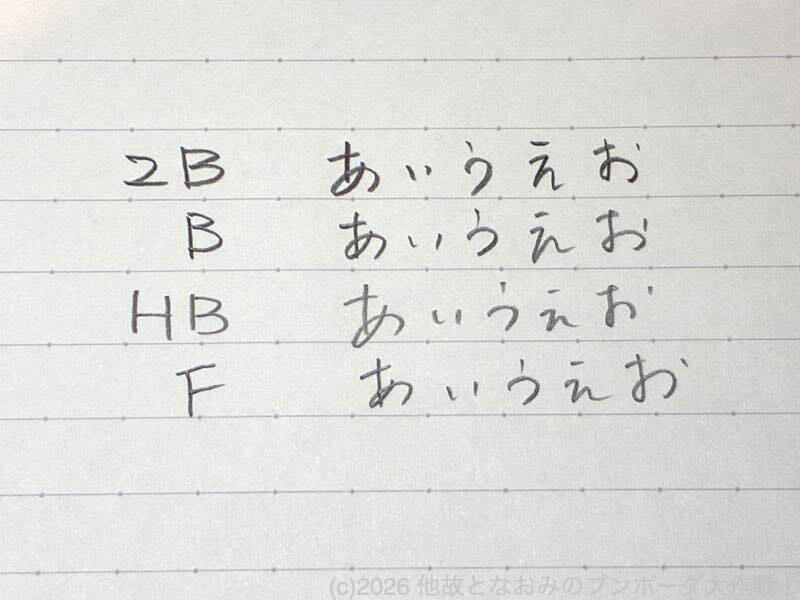 2B あいうえお
B あいうえお
HB あいうえお
F あいうえお
(c)2026 他故となおみのブンボーグ大作戦!